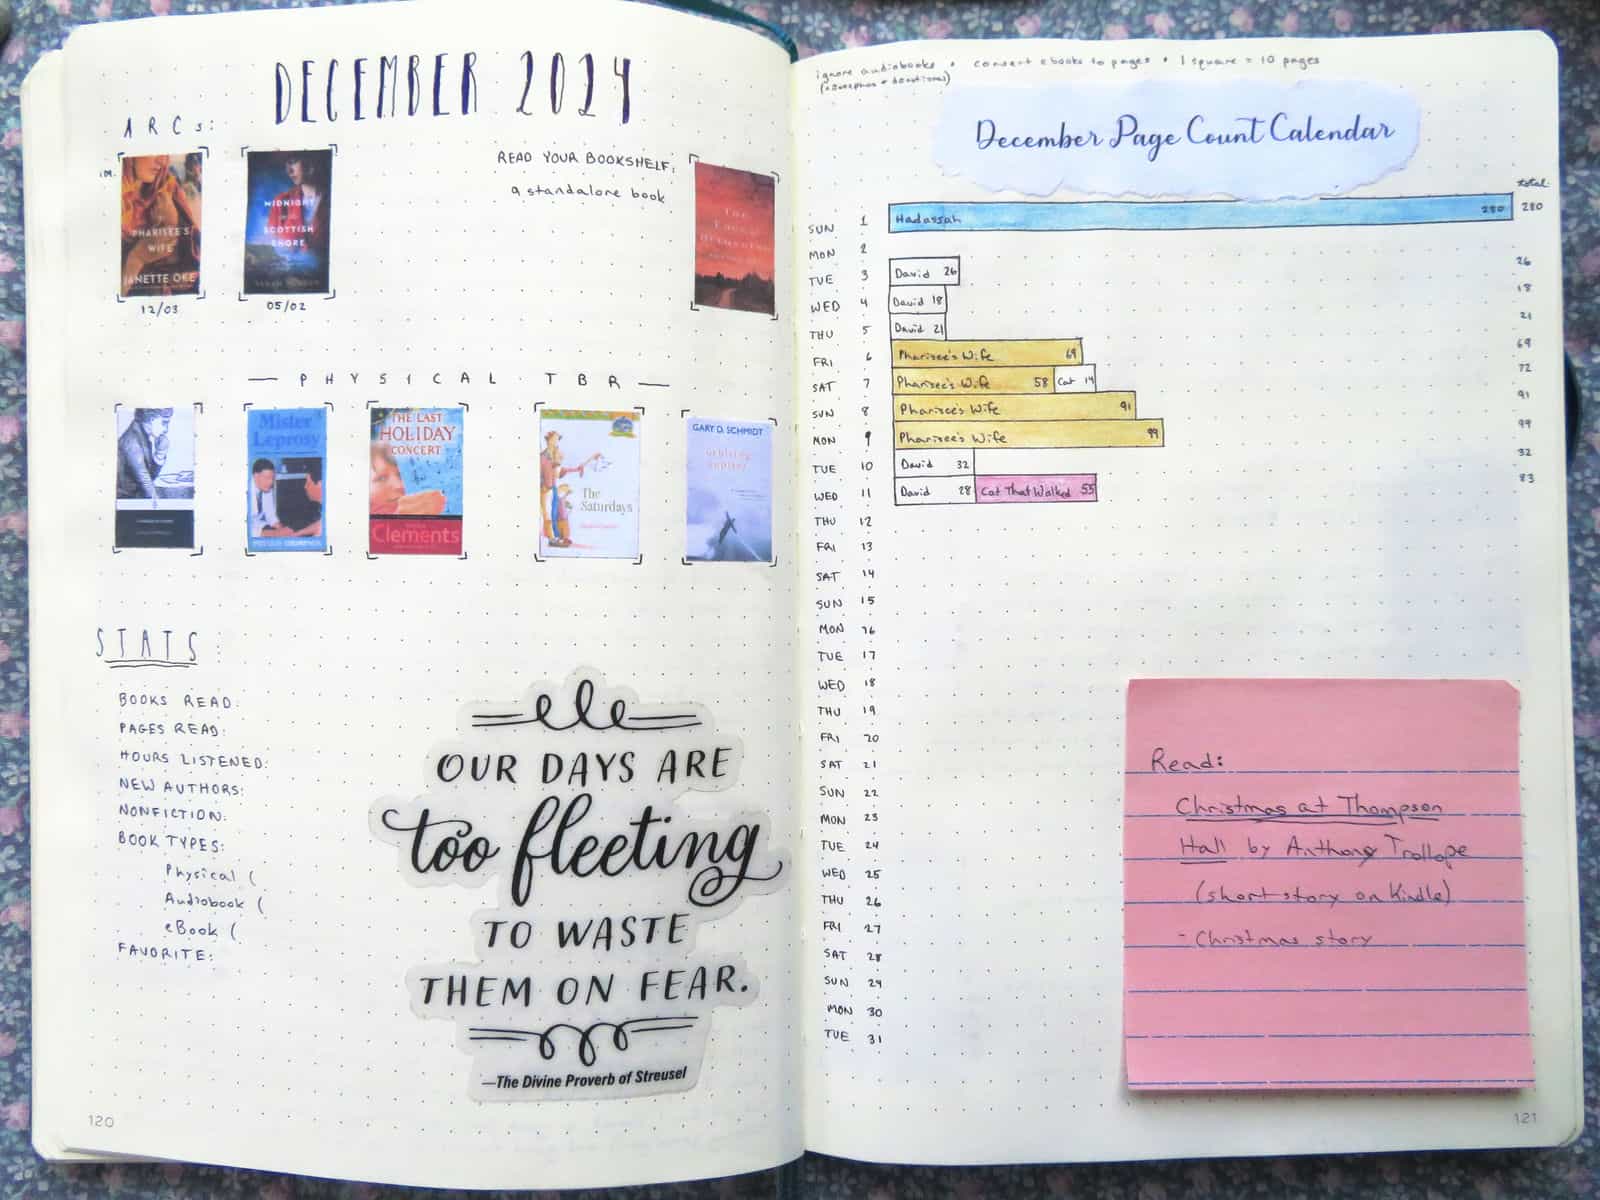 DECEMBER 2024
ARCs:
IM.
PHARISEE'S
WIFE
JANETTE OKE
12/03
MIDNIGHT
SCOTTISH
SHORE
05/02
READ YOUR BOOKSHELF:
a standalone book
The
— PHYSICAL TBR —
Mister
Leprosy
THE LAST
HOLIDAY
CONCERT
Clements
The
Saturdays
GARY D. SCHMIDT
orbiting
jupiter
STATS
BOOKS READ:
PAGES READ:
HOURS LISTENED:
NEW AUTHORS:
NONFICTION:
BOOK TYPES:
Physical (
Audiobook (
eBook (
FAVORITE:
OUR DAYS ARE
too fleeting
TO WASTE
THEM ON FEAR.
—The Divine Proverb of Streusel
120
ignore audiobooks • convert ebooks to pages • 1 square = 10 pages
December Page Count Calendar
total:
SUN 1 Hadassah 280 280
MON 2
TUE 3 David 26 26
WED 4 David 18 18
THU 5 David 21 21
FRI 6 Pharisee's Wife 69 69
SAT 7 Pharisee's Wife 58 Cat 14 72
SUN 8 Pharisee's Wife 91 91
MON 9 Pharisee's Wife 99 99
TUE 10 David 32 32
WED 11 David 28 Cat That Walked 55 83
THU 12
FRI 13
SAT 14
SUN 15
MON 16
TUE 17
WED 18
THU 19
FRI 20
SAT 21
SUN 22
MON 23
TUE 24
WED 25
THU 26
FRI 27
SAT 28
SUN 29
MON 30
TUE 31
Read:
Christmas at Thompson
Hall by Anthony Trollope
(short story on Kindle)
- Christmas story
121